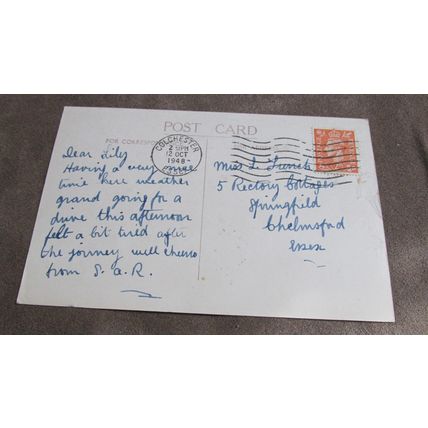 POST CARD
FOR CORRESPO
COLCHESTER
12 OCT
1948
ESSEX
Dear Lily
Having a very
time here weather
grand going for a
drive this afternoon
felt a bit tired after
the journey well cheerio
from S. a. R.
Miss L
5 Rectory Cottages
Springfield
Chelmsford
Essex